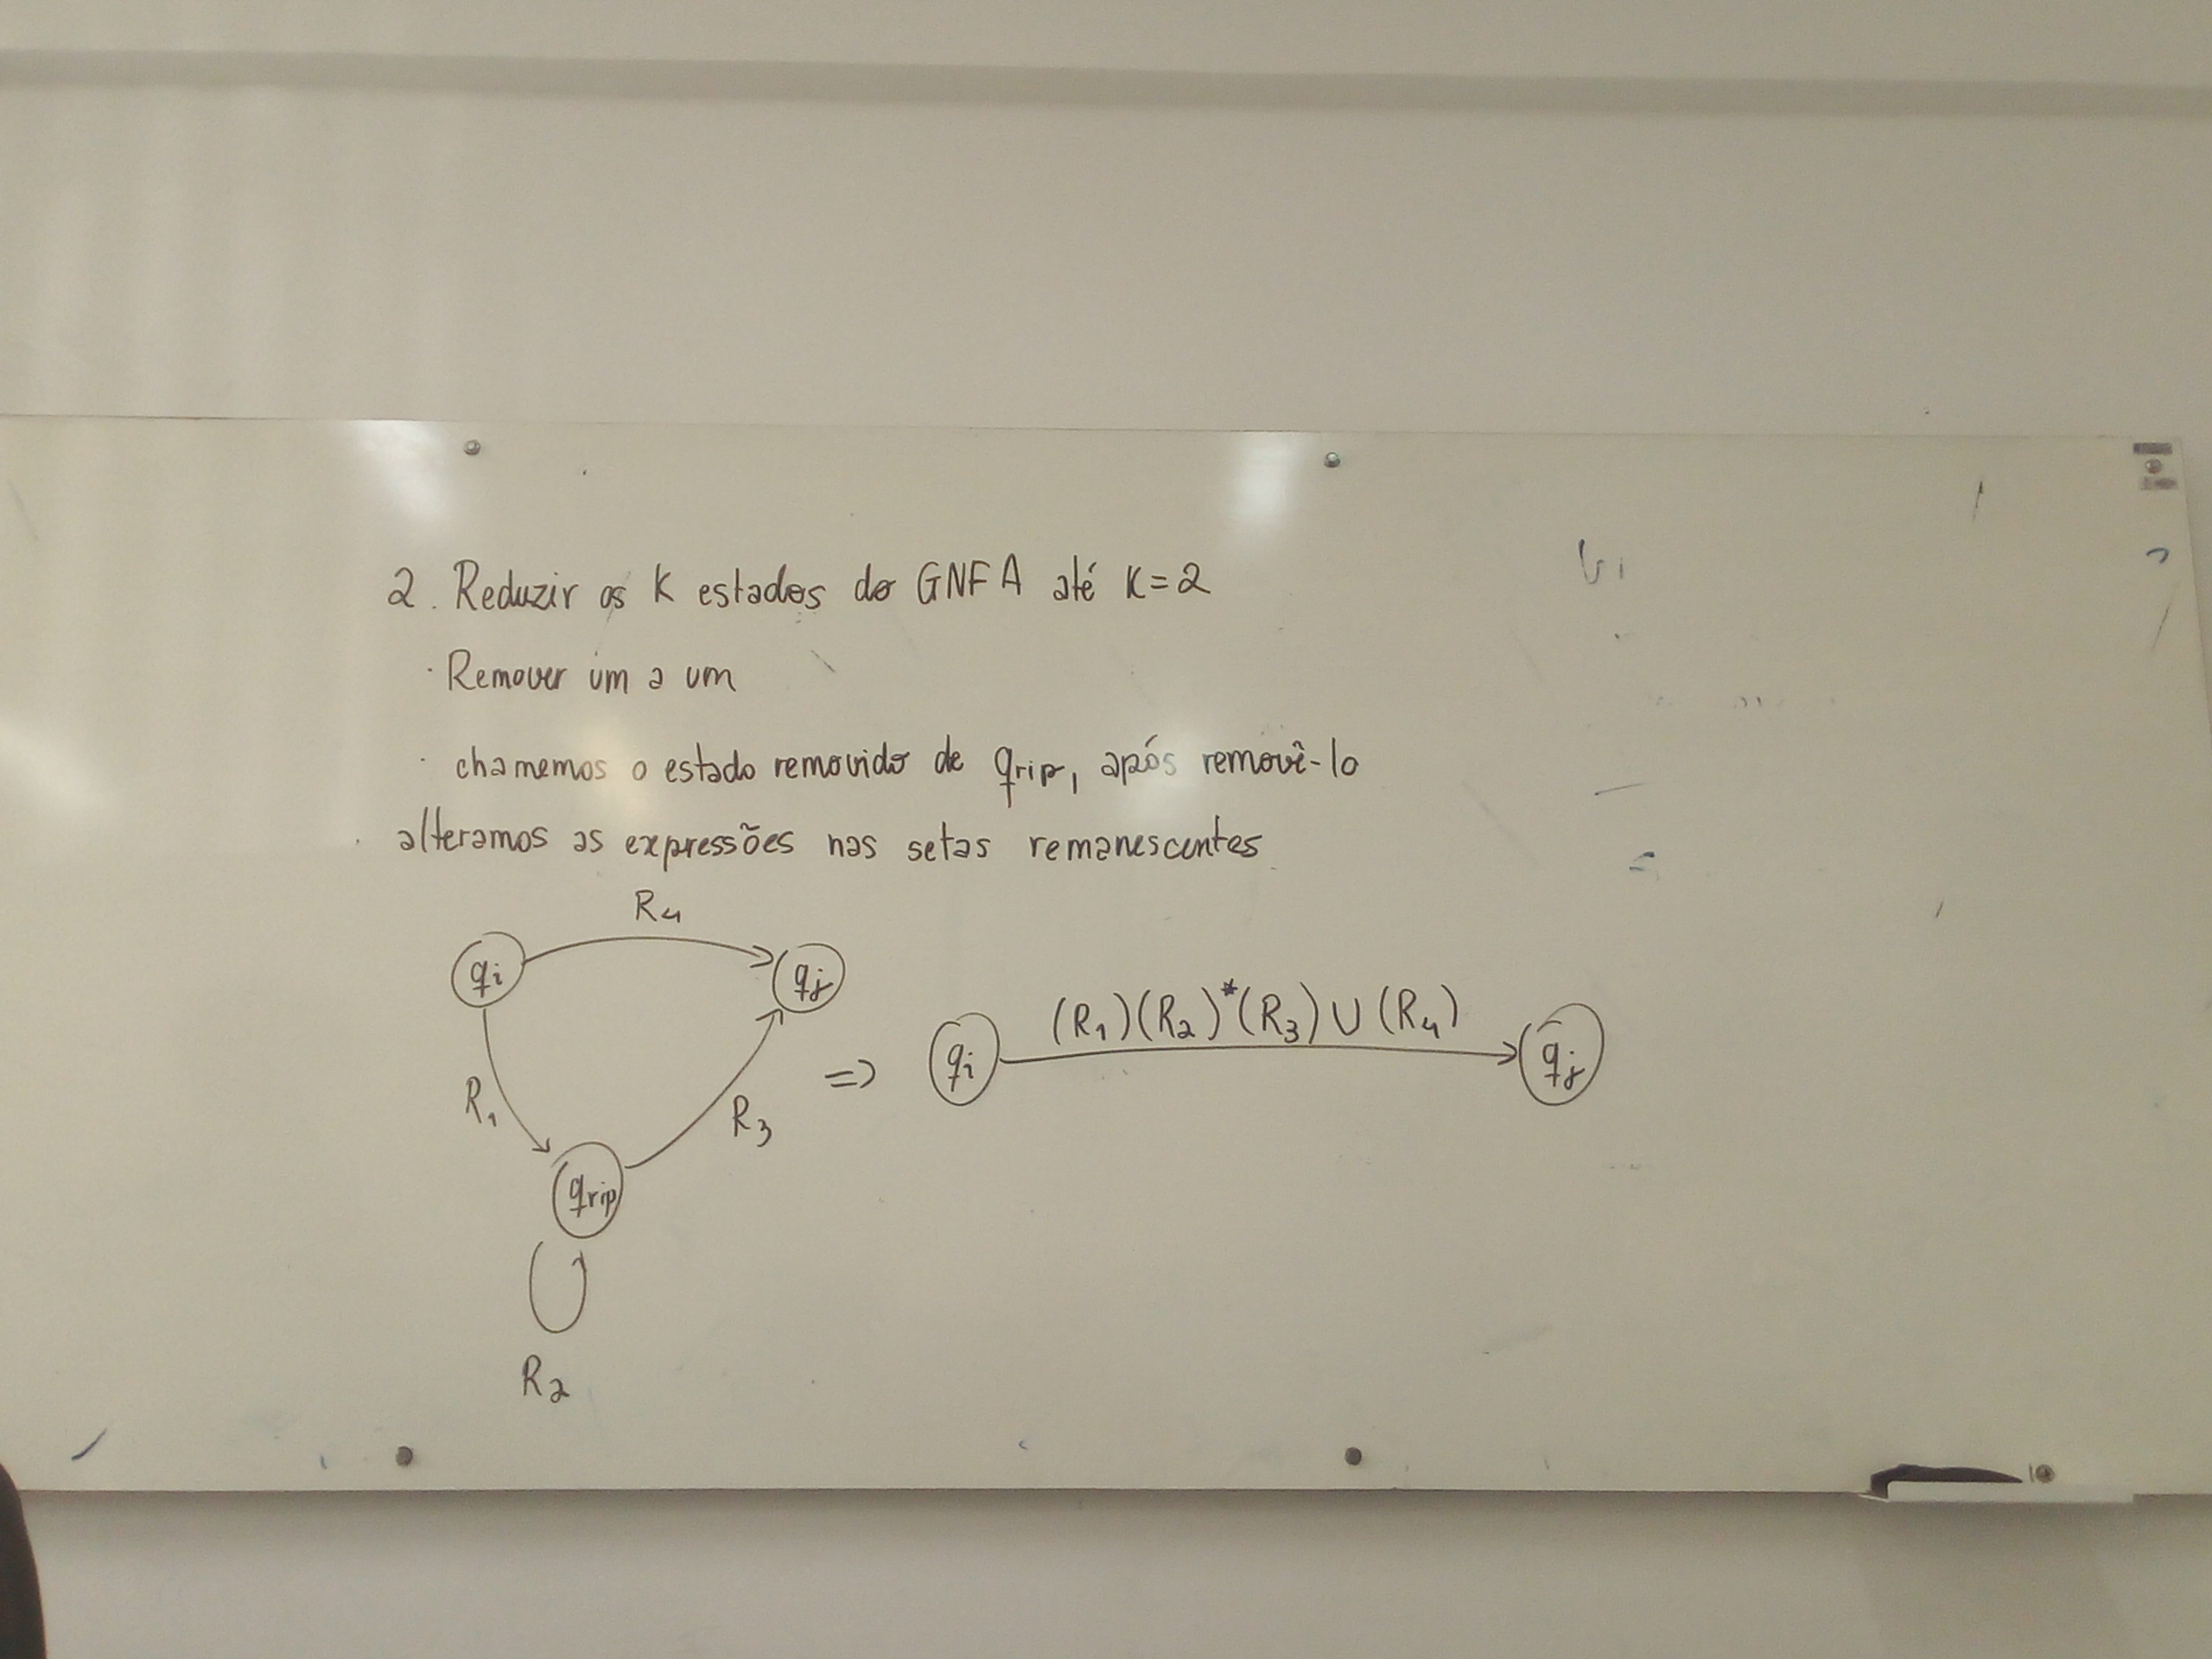 2. Reduzir os K estados do GNFA até K=2
· Remover um a um
· chamemos o estado removido de qrip, após removê-lo
alteramos as expressões nas setas remanescentes
R4
qi
qj
R1
R3
qrip
R2
=>
qi
(R1)(R2)*(R3)∪(R4)
qj